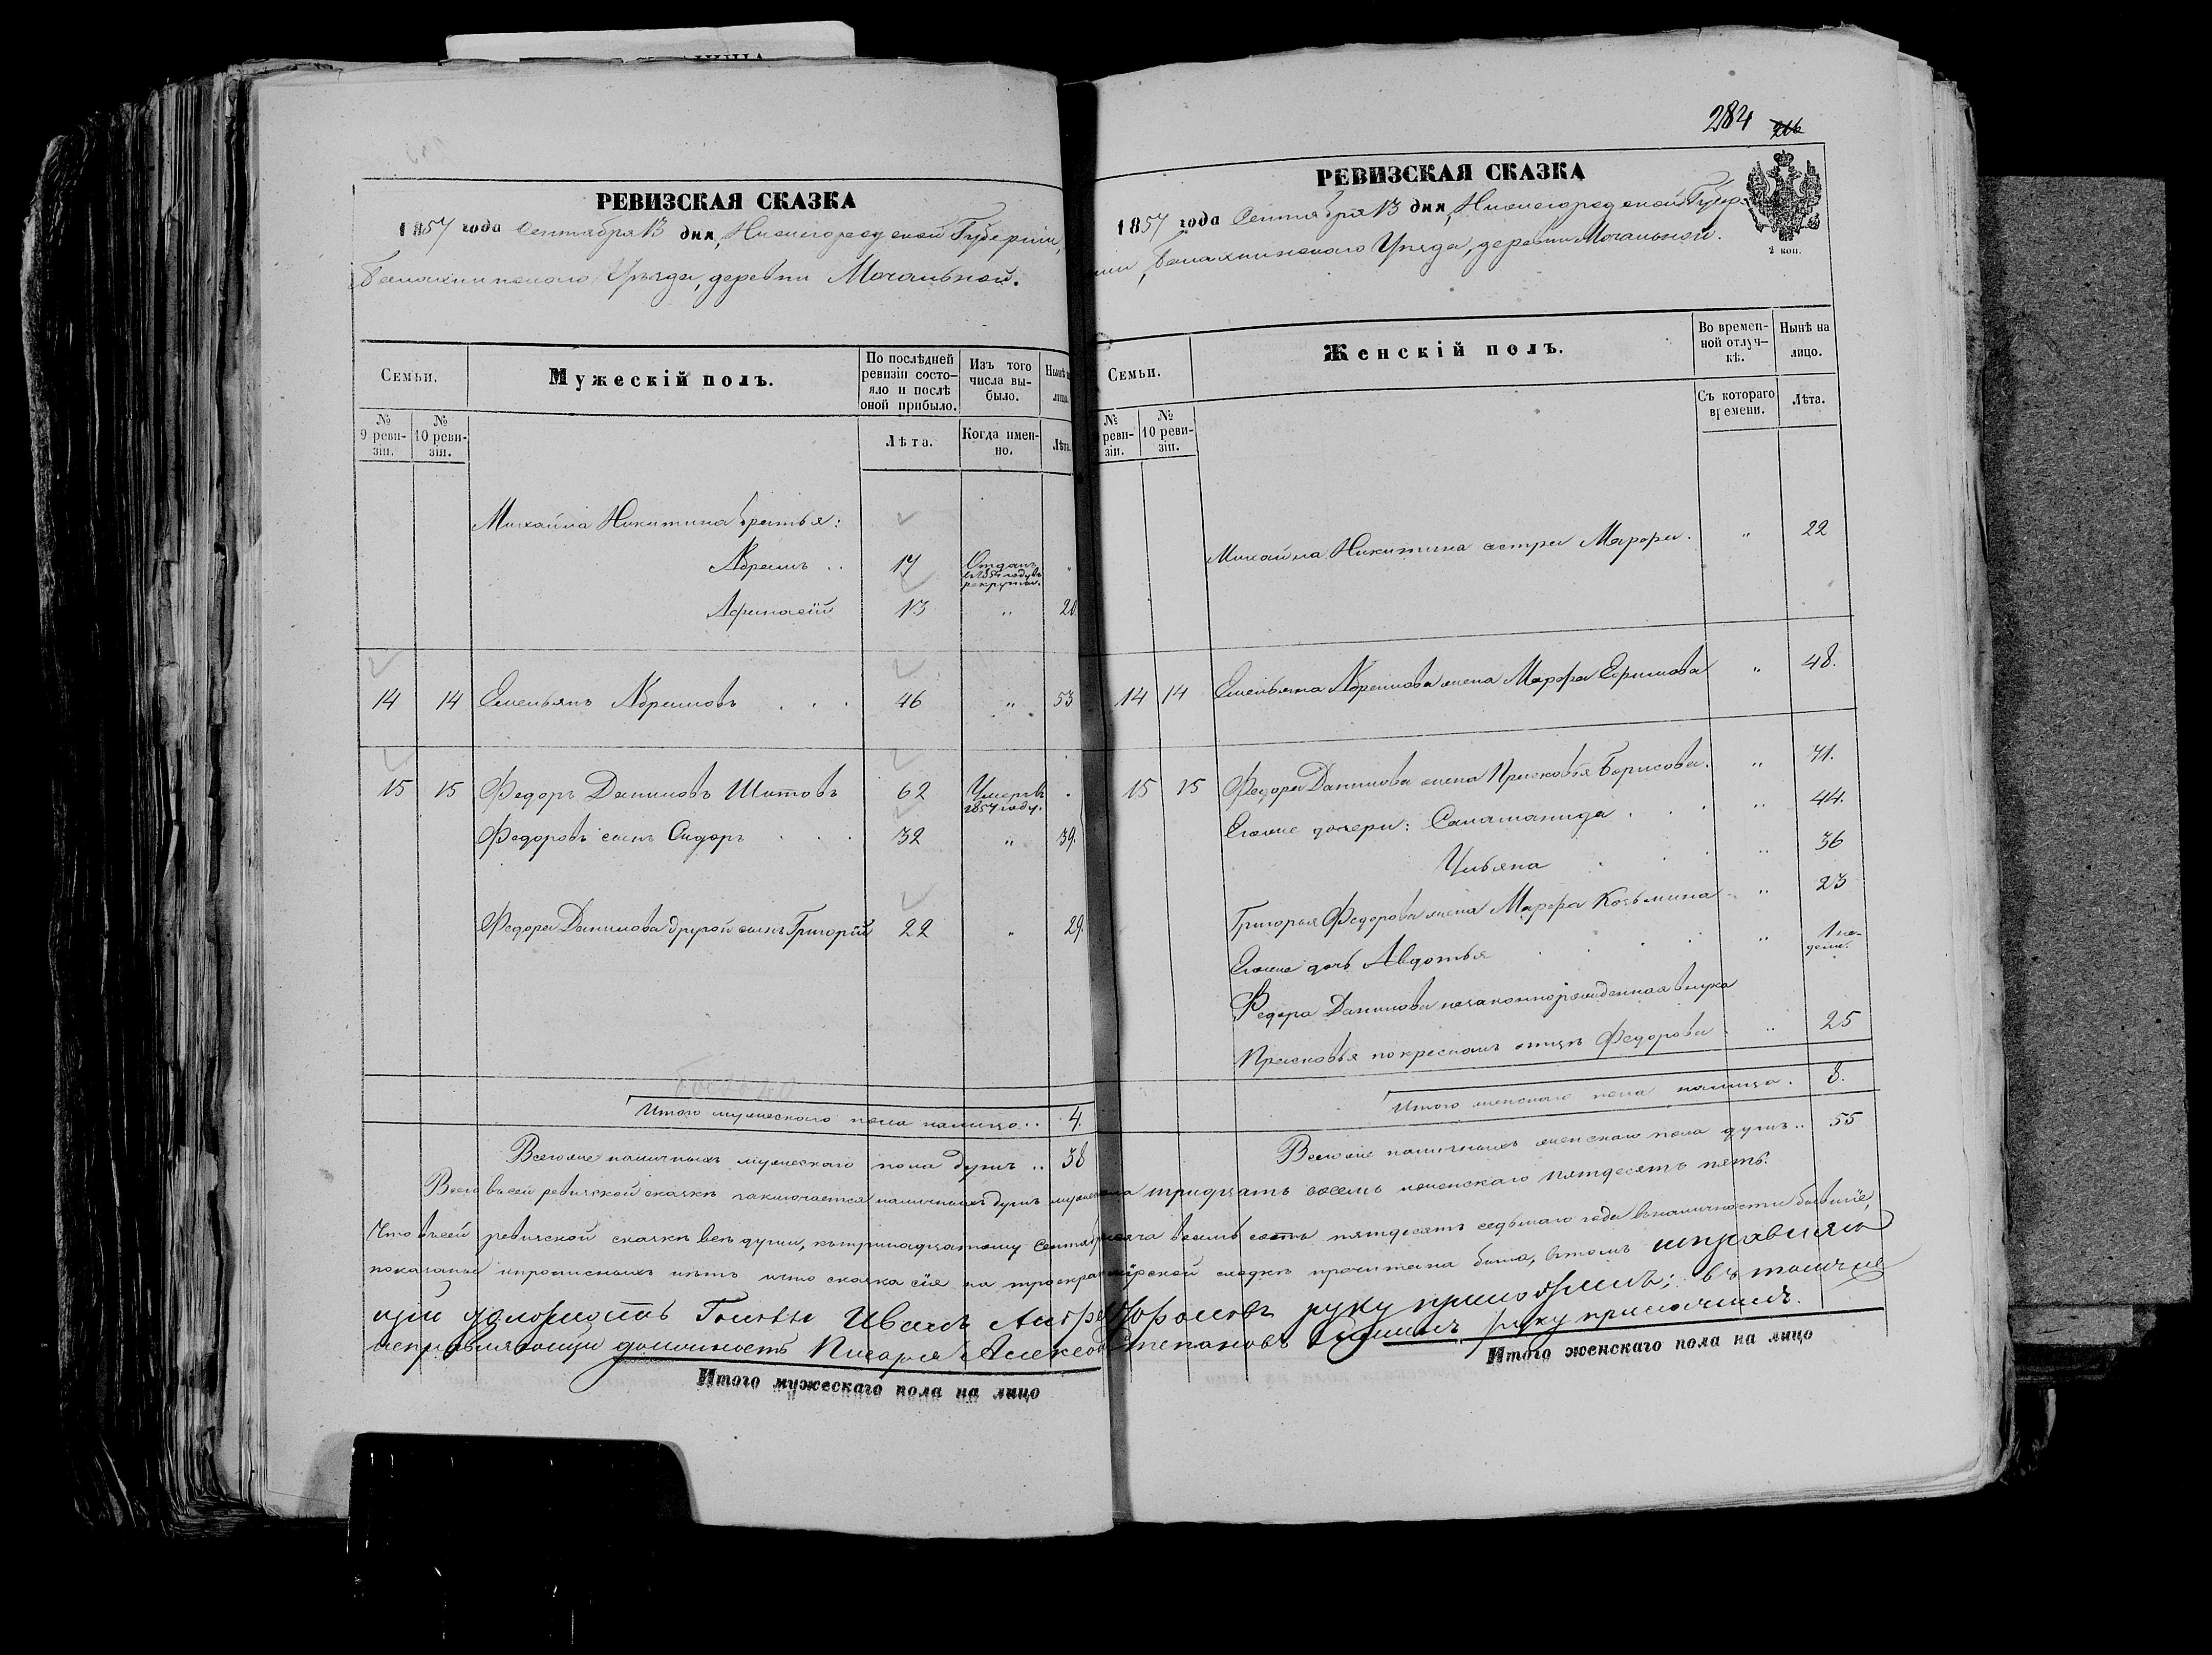 РЕВИЗСКАЯ СКАЗКА
1857 года Сентября 13 дня, Нижегородской Губернiи,
Балахнинскаго Уѣзда, деревни Мочальной.
Семьи.
Мужескiй полъ.
По послѣдней ревизiи состо-
яло и послѣ
оной прибыло.
Изъ того
числа вы-
было.
Нынѣ
лицо.
№
9 реви-
зiи.
№
10 реви-
зiи.
Лѣта.
Когда имен-
но.
Лѣта.
Михайла Никитина братья:
Абрамъ .. 17 Отданъ въ 1854 году въ рекруты.
Афанасiй 13 " 20
14 14 Емельянъ Абрамовъ . . . 46 " 53
15 15 Федоръ Даниловъ Шитовъ 62 Умеръ въ 1857 году.
Федоровъ сынъ Сидоръ . . . 32 " 39.
Федора Данилова другой сынъ Григорiй 22 " 29.
Итого мужескаго пола налицо .. 4.
Всего же наличныхъ мужескаго пола душъ .. 38
284
216
РЕВИЗСКАЯ СКАЗКА
1857 года Сентября 13 дня, Нижегородской Губер-
нiи, Балахнинскаго Уѣзда, деревни Мочальной.
2 коп.
Семьи.
Женскiй полъ.
Во времен-
ной отлуч-
кѣ.
Нынѣ на
лицо.
№
реви-
зiи.
№
10 реви-
зiи.
Съ котораго
времени.
Лѣта.
Михайла Никитина сестра Марфа. " 22
14 14 Емельяна Абрамова жена Марфа Ефимова " 48.
15 15 Федора Данилова жена Прасковья Борисова. " 71.
Егоже дочери: Саламанида . . " 44.
Ульяна . . . " 36
Григорья Федорова жена Марфа Козьмина " 23
Егоже дочь Авдотья . . . " 1 не-
дели.
Федора Данилова незаконнорожденная внука
Прасковья покрестномъ отцѣ Федорова . " 25
Итого женскаго пола налицо . 8.
Всего же наличныхъ женскаго пола душъ .. 55
Всего въ сей ревизской сказкѣ заключается наличныхъ душъ мужеска тридцать восемь женскаго пятдесятъ пять.
Что въ сей ревизской сказкѣ всѣ души, къ тринадцатому Сентября тысяча восемь сотъ пятдесятъ седьмаго года въ наличности бывшiе,
показаны и прописныхъ нѣтъ и что сказка сiя на троекратной мiрской сходкѣ прочитана была, въ томъ исправляю
щiй должность Головы Иванъ руку приложилъ; въ томъ же
исправляющiй должность Писаря Алексей Степановъ руку приложилъ.
Итого мужескаго пола на лицо
Итого женскаго пола на лицо